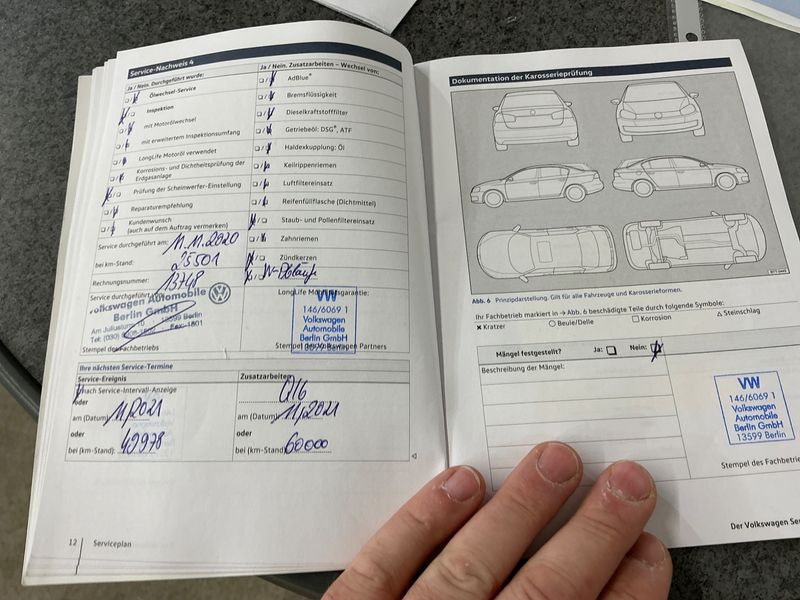 Service-Nachweis 4
Ja / Nein. Durchgeführt wurde:
Ölwechsel-Service
Inspektion
mit Motorölwechsel
mit erweitertem Inspektionsumfang
LongLife Motoröl verwendet
Korrosions- und Dichtheitsprüfung der
Erdgasanlage
Prüfung der Scheinwerfer-Einstellung
Reparaturempfehlung
Kundenwunsch
(auch auf dem Auftrag vermerken)
Service durchgeführt am: 11.11.2020
bei km-Stand: 25501
Rechnungsnummer: 13748
Service durchgeführt
Volkswagen Automobile
Berlin GmbH
13599 Berlin
Stempel des Fachbetriebs
Ja / Nein. Zusatzarbeiten – Wechsel von:
AdBlue®
Bremsflüssigkeit
Dieselkraftstofffilter
Getriebeöl: DSG®, ATF
Haldexkupplung: Öl
Keilrippenriemen
Luftfiltereinsatz
Reifenfüllflasche (Dichtmittel)
Staub- und Pollenfiltereinsatz
Zahnriemen
Zündkerzen
LongLife Mobilitätsgarantie:
VW
146/6069 1
Volkswagen
Automobile
Berlin GmbH
13599 Berlin
Stempel des Volkswagen Partners
Ihre nächsten Service-Termine
Service-Ereignis
nach Service-Intervall-Anzeige
oder
am (Datum): 11/2021
oder
bei (km-Stand):
Zusatzarbeiten
am (Datum): 11/2021
oder
bei (km-Stand) 60000
12 Serviceplan
Dokumentation der Karosserieprüfung
Abb. 6 Prinzipdarstellung. Gilt für alle Fahrzeuge und Karosserieformen.
Ihr Fachbetrieb markiert in ⇒ Abb. 6 beschädigte Teile durch folgende Symbole:
✖ Kratzer ○ Beule/Delle □ Korrosion △ Steinschlag
Mängel festgestellt? Ja: Nein:
Beschreibung der Mängel:
VW
146/6069 1
Volkswagen
Automobile
Berlin GmbH
13599 Berlin
Stempel des Fachbetrie
Der Volkswagen Ser